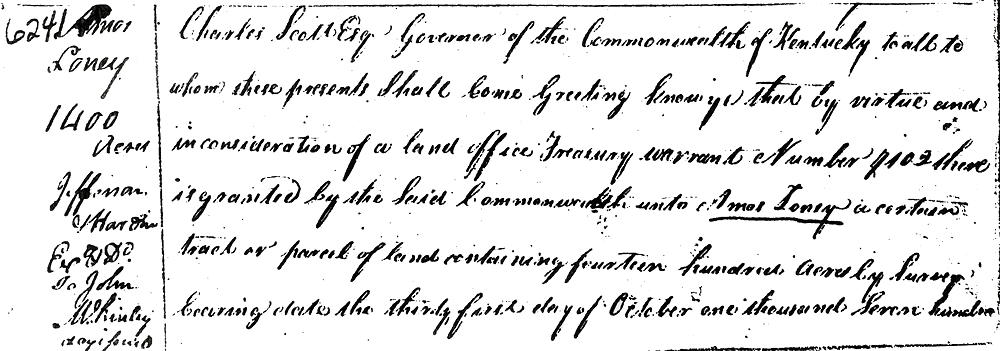 6241 Amos
Loney
1400
Acres
Jefferson
& Hardin
Ex & Dd
To John
McKinley
Charles Scott Esqr Governor of the Commonwealth of Kentucky to all to
whom these presents Shall Come Greeting Know ye that by virtue and
in consideration of a land office Treasury warrant Number 9102 there
is granted by the Said Commonwealth unto Amos Loney a certain
tract or parcel of land containing fourteen hundred Acres by Survey
bearing date the thirty first day of October one thousand Seven hundred